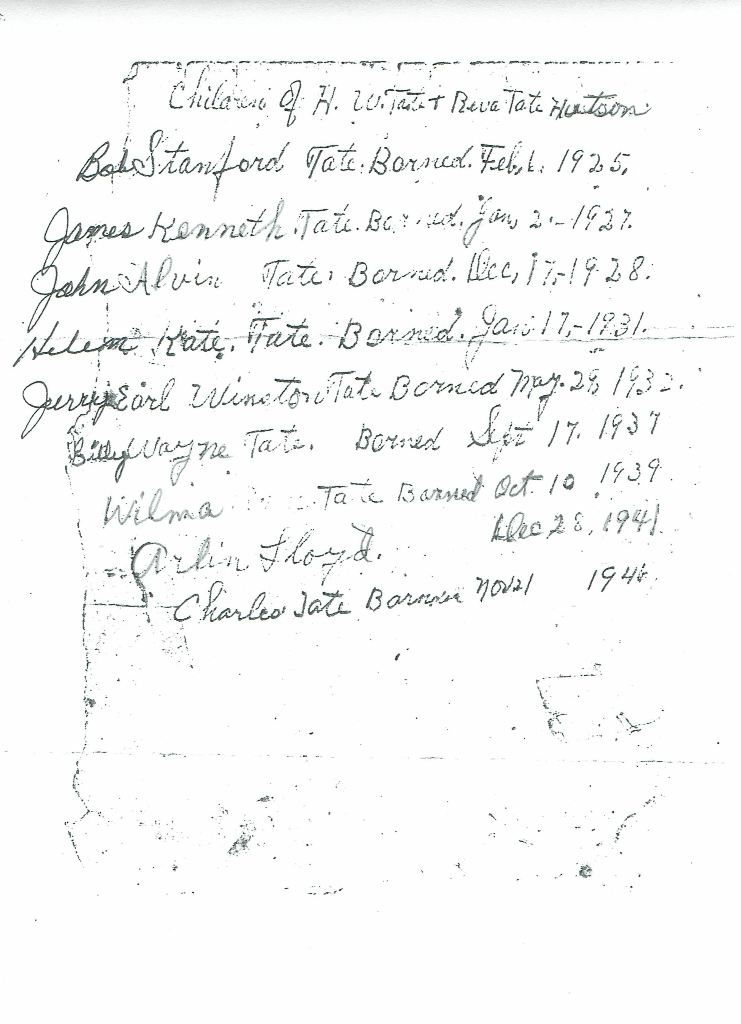 Children of H. W. Tate + Reva Tate Hutson
Bob Stanford Tate. Borned. Feb. 1. 1925.
James Kenneth Tate. Borned. Jan. 2.-1927.
John Alvin Tate. Borned. Dec, 17,-1928.
Helen Kate. Tate. Borned. Jan 17,-1931.
Jerry Earl Winston Tate Borned May. 28 1933.
Billy Wayne Tate. Borned Sept 17. 1937
Wilma Tate Borned Oct. 10 1939
Arlin Floyd. Dec 28, 1941.
Charles Tate Nov 21 1946